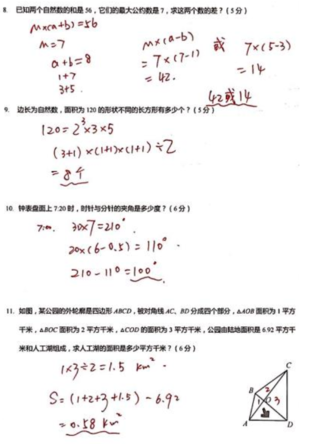 8. 已知两个自然数的和是 56，它们的最大公约数是 7，求这两个数的差？（5 分）
m×(a+b)=56
m=7
a+b=8
1+7
3+5
m×(a-b)
=7×(7-1)
=42.
或 7×(5-3)
=14
42或14
9. 边长为自然数，面积为 120 的形状不同的长方形有多少个？（5 分）
120=2³×3×5
(3+1)×(1+1)×(1+1)÷2
=8个
10. 钟表盘面上 7:20 时，时针与分针的夹角是多少度？（6 分）
7:00. 30×7=210°
20×(6-0.5)=110°.
210-110=100°.
11. 如图，某公园的外轮廓是四边形 ABCD，被对角线 AC、BD 分成四个部分，△AOB 面积为 1 平方
千米，△BOC 面积为 2 平方千米，△COD 的面积为 3 平方千米，公园由陆地面积是 6.92 平方千
米和人工湖组成，求人工湖的面积是多少平方千米？（6 分）
1×3÷2=1.5 km².
S=(1+2+3+1.5)-6.92
=0.58 km²
C
B
2
1
O
3
A
D